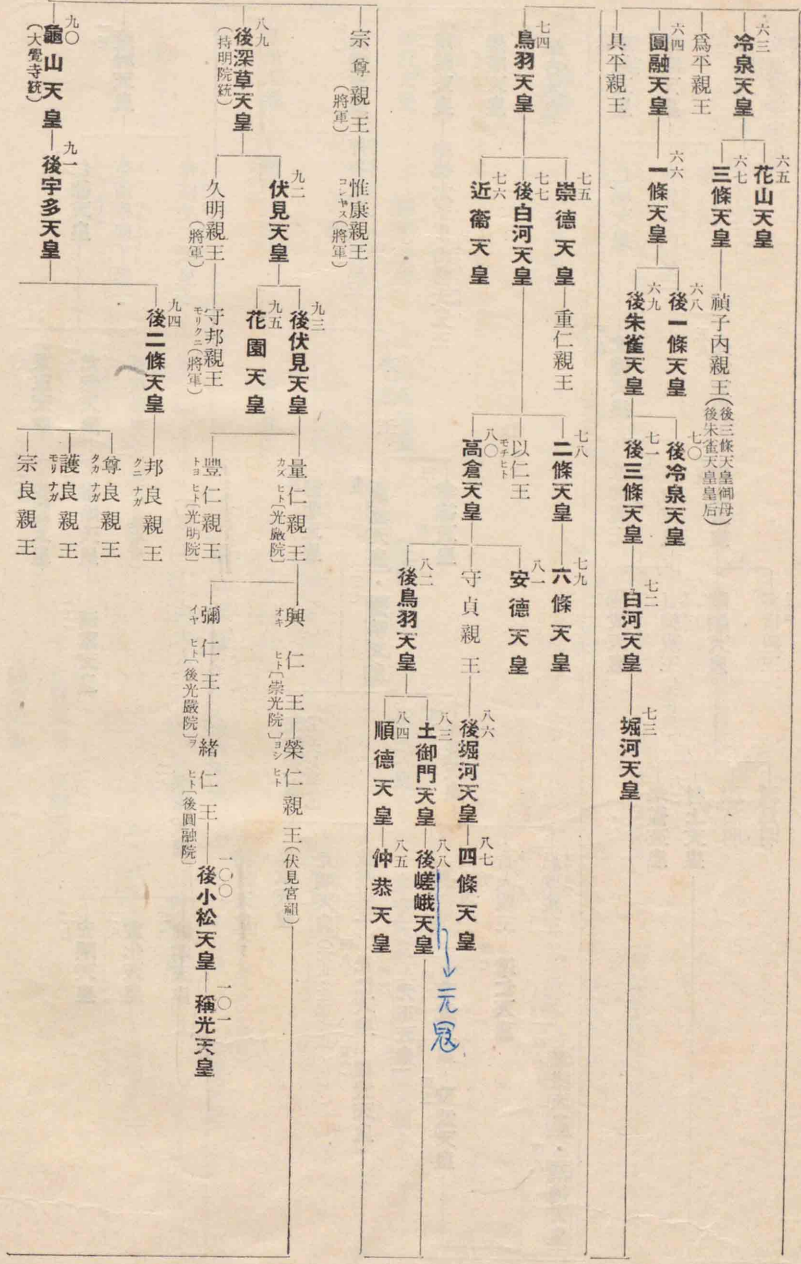 六三
冷泉天皇
六五
花山天皇
六七
三條天皇
禎子内親王(後三條天皇御母
後朱雀天皇皇后)
爲平親王
六四
圓融天皇
六六
一條天皇
六八
後一條天皇
六九
後朱雀天皇
七〇
後冷泉天皇
七一
後三條天皇
七二
白河天皇
七三
堀河天皇
具平親王
七四
鳥羽天皇
七五
崇德天皇
重仁親王
七七
後白河天皇
七六
近衞天皇
七八
二條天皇
七九
六條天皇
以仁王
モチヒト
八〇
高倉天皇
八一
安德天皇
守貞親王
八六
後堀河天皇
八七
四條天皇
八二
後鳥羽天皇
八三
土御門天皇
八八
後嵯峨天皇
→元冠
八四
順德天皇
八五
仲恭天皇
宗尊親王
(將軍)
惟康親王
コレヤス(將軍)
八九
後深草天皇
(持明院統)
九二
伏見天皇
九三
後伏見天皇
量仁親王
カズヒト〔光嚴院〕
興仁王
オキヒト〔崇光院〕
榮仁親王(伏見宮祖)
ヨシヒト
彌仁王
イヤヒト〔後光嚴院〕
緒仁王
ヲヒト〔後圓融院〕
一〇〇
後小松天皇
一〇一
稱光天皇
豐仁親王
トヨヒト〔光明院〕
九五
花園天皇
久明親王
(將軍)
守邦親王
モリクニ(將軍)
九〇
龜山天皇
(大覺寺統)
九一
後宇多天皇
九四
後二條天皇
邦良親王
クニナガ
尊良親王
タカナガ
護良親王
モリナガ
宗良親王